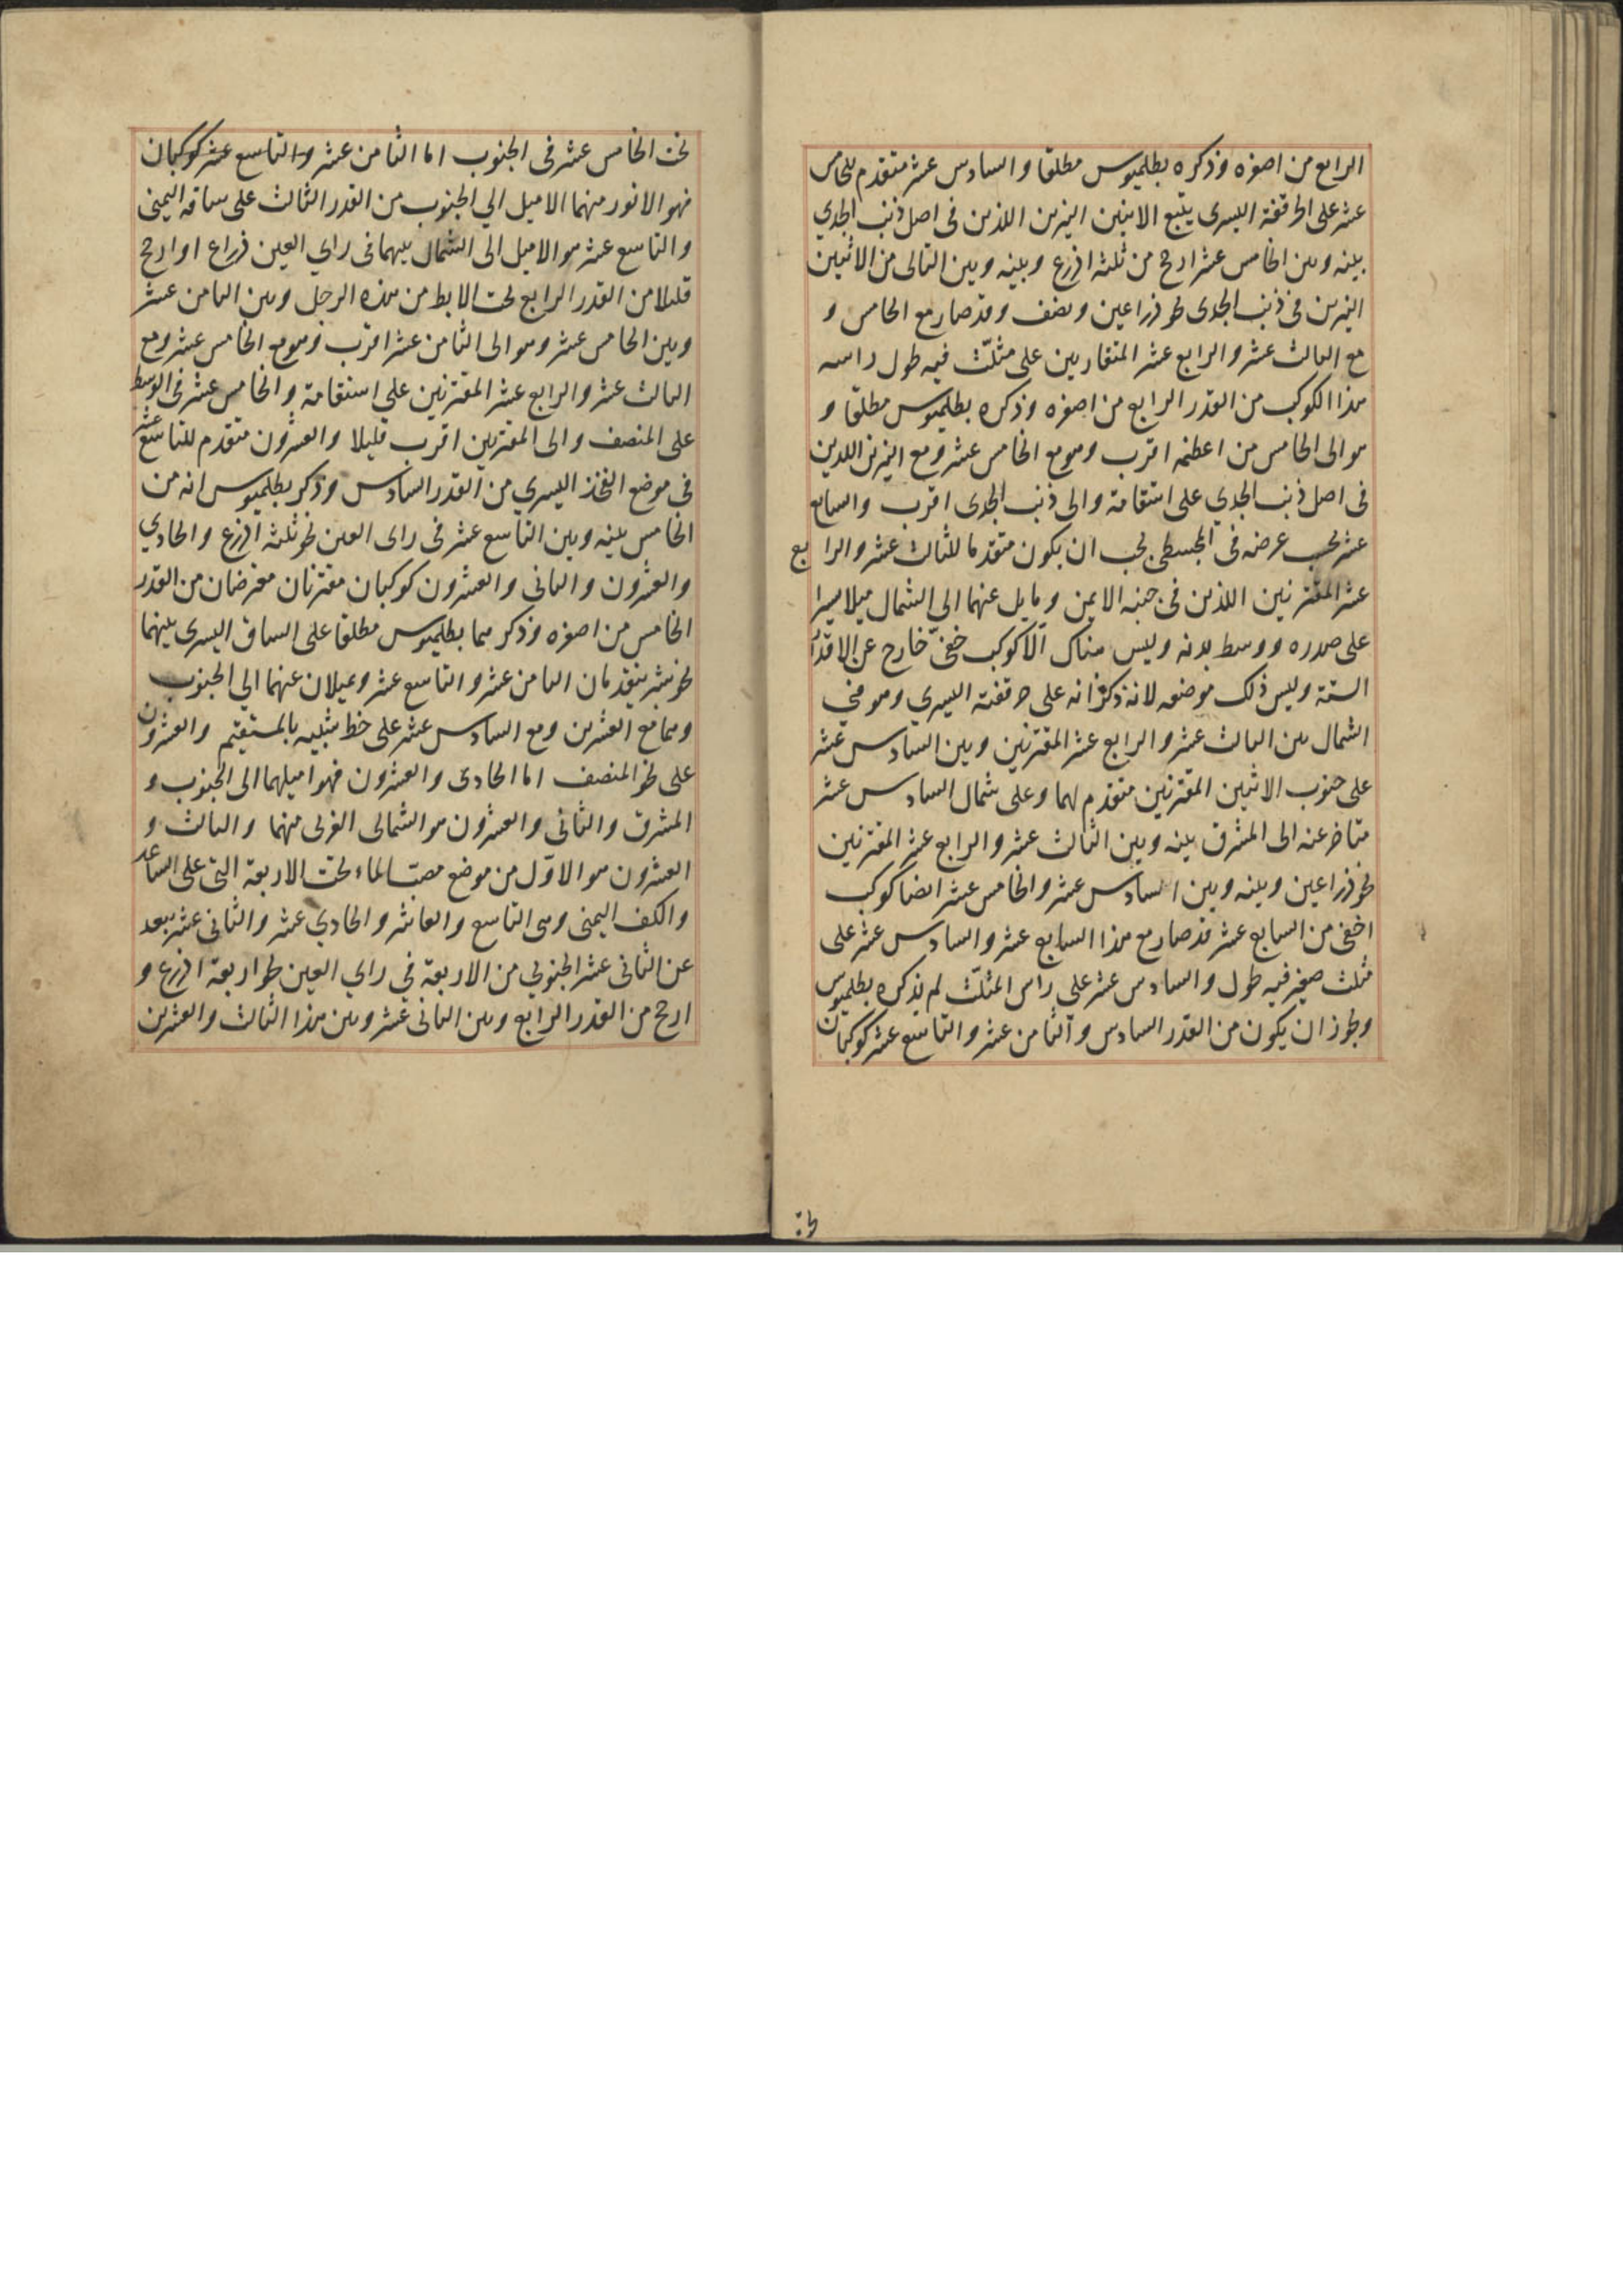 الرابع من اصغره وذكره بطلميوس مطلقا والسادس عشر متقدم للخامس
عشر على الحرقفة اليسرى يتبع الاثنين النيرين اللذين فى اصل ذنب الجدي
بينه وبين الخامس عشر ارجح من ثلثة اذرع وبينه وبين التالى من الاثنين
النيرين فى ذنب الجدى نحو ذراعين ونصف وقد صار مع الخامس و
مع الثالث عشر والرابع عشر المتقاربين على مثلّث فيه طول راسه
هذا الكوكب من القدر الرابع من اصغره وذكره بطلميوس مطلقا و
هو الى الخامس من اعظمه اقرب وهو مع الخامس عشر ومع النيرين اللذين
فى اصل ذنب الجدي على استقامة والى ذنب الجدى اقرب والسابع
عشر بحسب عرضه فى المجسطى يجب ان يكون متقدما للثالث عشر والرابع
عشر المقترنين اللذين فى جنبه الايمن ومايل عنهما الى الشمال ميلا يسيرا
على صدره ووسط بدنه وليس هناك الا كوكب خفىّ خارج عن الاقدار
الستة وليس ذلك موضعه لانه ذكر انه على حرقفته اليسري وهو فى
الشمال بين الثالث عشر والرابع عشر المقترنين وبين السادس عشر
على جنوب الاثنين المقترنين متقدم لهما وعلى شمال السادس عشر
متاخر عنه الى المشرق بينه وبين الثالث عشر والرابع عشر المقترنين
نحو ذراعين وبينه وبين السادس عشر والخامس عشر ايضا كوكب
اخفى من السابع عشر قد صار مع هذا السابع عشر والسادس عشر على
مثلث صغير فيه طول والسادس عشر على راس المثلّث لم يذكره بطلميوس
ويجوز ان يكون من القدر السادس والثامن عشر والتاسع عشر كوكبان
تحت الخامس عشر فى الجنوب اما الثامن عشر والتاسع عشر كوكبان
فهو الانور منهما الاميل الي الجنوب من القدر الثالث على ساقه اليمنى
والتاسع عشر هو الاميل الى الشمال بينهما فى راي العين ذراع او ارجح
قليلا من القدر الرابع تحت الابط من هذه الرجل وبين الثامن عشر
وبين الخامس عشر وهو الى الثامن عشر اقرب وهو مع الخامس عشر ومع
الثالث عشر والرابع عشر المقترنين على استقامة والخامس عشر فى الوسط
على المنصف والى المقترنين اقرب قليلا والعشرون متقدم للتاسع عشر
فى موضع الفخذ اليسري من القدر السادس وذكر بطلميوس انه من
الخامس بينه وبين التاسع عشر فى راى العين نحو ثلثة اذرع والحادي
والعشرون والثانى والعشرون كوكبان مقترنان معترضان من القدر
الخامس من اصغره وذكرهما بطلميوس مطلقا على الساق اليسرى بينهما
نحو شبر يتقدمان الثامن عشر والتاسع عشر ويميلان عنهما الي الجنوب
وهما مع العشرين ومع السادس عشر على خط شبيه بالمستقيم والعشرون
على نحو المنصف اما الحادى والعشرون فهو اميلهما الى الجنوب و
المشرق والثانى والعشرون هو الشمالى الغربى منهما والثالث و
العشرون هو الاوّل من موضع مصب الماء تحت الاربعة التى على الساعد
والكف اليمنى وهى التاسع والعاشر والحادي عشر والثانى عشر يبعد
عن الثانى عشر الجنوبي من الاربعة في راي العين نحو اربعة اذرع و
ارجح من القدر الرابع وبين الثانى عشر وبين هذا الثالث والعشرين